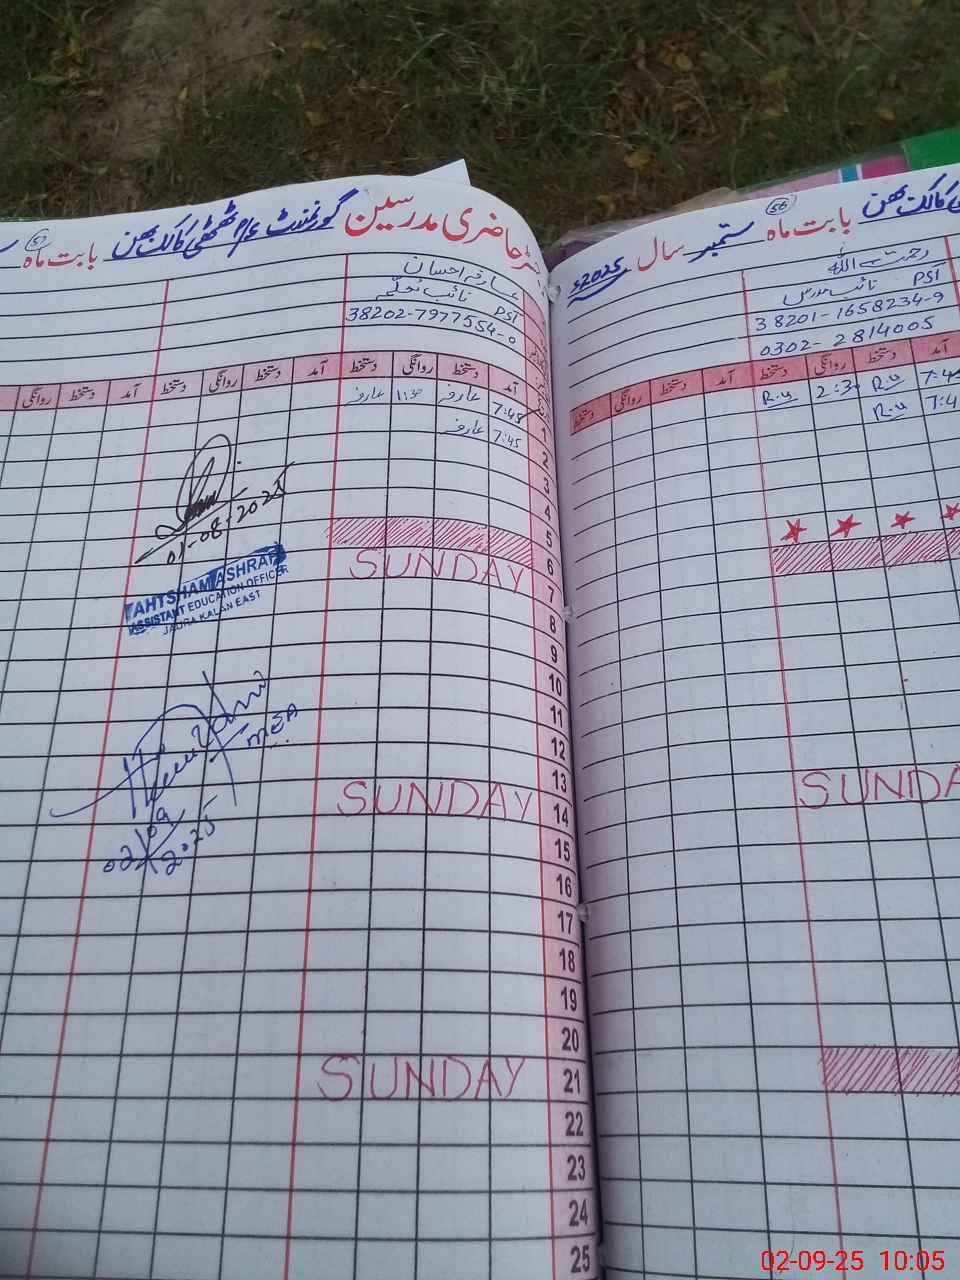 رجسٹر حاضری مدرسین گورنمنٹ بابت ماہ
عارفہ احسان
PSI
38202-7977554-0
آمد دستخط روانگی دستخط آمد دستخط روانگی دستخط آمد دستخط روانگی
1 7:45 عارفہ 11:30 عارفہ
2 7:45 عارفہ
3
4
5
6
SUNDAY 7
8
9
10
11
12
13
SUNDAY 14
15
16
17
18
19
20
SUNDAY 21
22
23
24
25
01-08-2025
AHTSHAM ASHRAF
ASSISTANT EDUCATION OFFICER
JAURA KALAN EAST
MEA
02/09/2025
56 بابت ماہ ستمبر سال 2025ء
رحمت اللہ
PSI نائب مدرس
38201-1658234-9
0302-2814005
آمد دستخط روانگی دستخط آمد دستخط روانگی دستخط
R.u 2:30 R.u
R.u
SUNDA
02-09-25 10:05